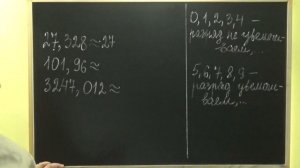 27,328≈27
101,96≈
3247,012≈
0,1,2,3,4 –
разряд не увеличи-
ваем,...
5,6,7,8,9 –
разряд увеличи-
ваем,...